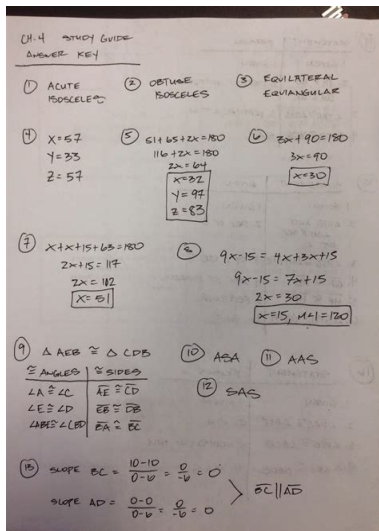 CH.4 STUDY GUIDE
ANSWER KEY
① ACUTE ISOSCELES
② OBTUSE ISOSCELES
③ EQUILATERAL EQUIANGULAR
④ X=57
Y=33
Z=57
⑤ 51+65+2x=180
116+2x=180
2x=64
X=32
Y=97
Z=83
⑥ 3x+90=180
3x=90
X=30
⑦ x+x+15+63=180
2x+15=117
2x=102
X=51
⑧ 9x-15=4x+3x+15
9x-15=7x+15
2x=30
X=15, m∠1=120
⑨ △AEB ≅ △CDB
≅ ANGLES ≅ SIDES
∠A≅∠C AE≅CD
∠E≅∠D EB≅DB
∠ABE≅∠CBD BA≅BC
⑩ ASA
⑪ AAS
⑫ SAS
⑬ SLOPE BC = 10-10/0-6 = 0/-6 = 0
SLOPE AD = 0-0/0-6 = 0/-6 = 0
BC || AD